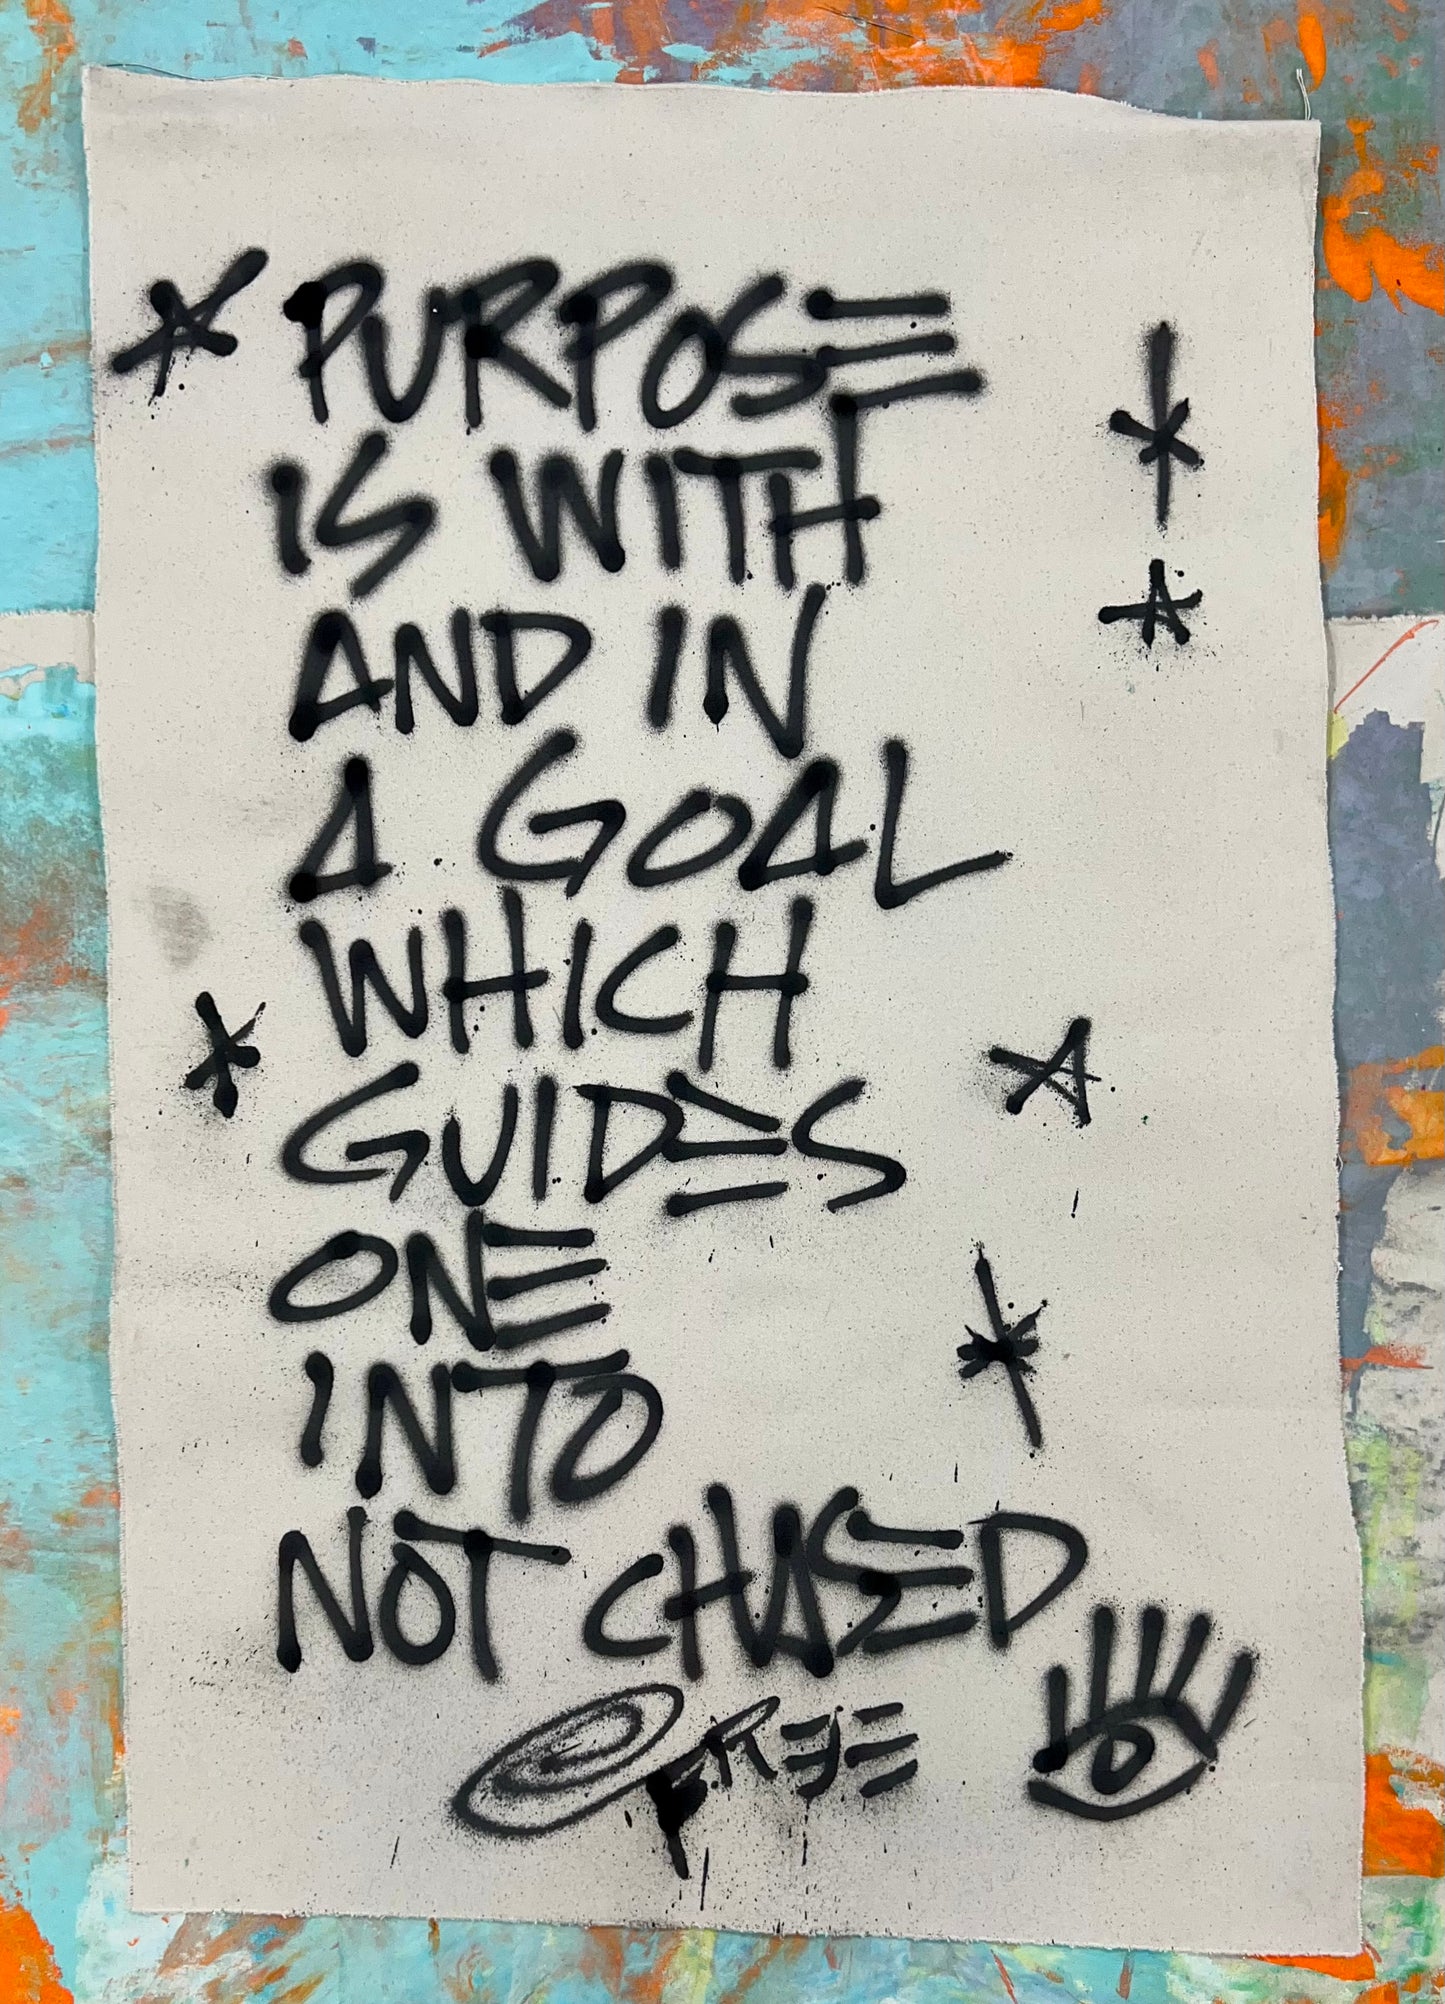 PURPOSE
IS WITH
AND IN
A GOAL
WHICH
GUIDES
ONE
INTO
NOT CHASED